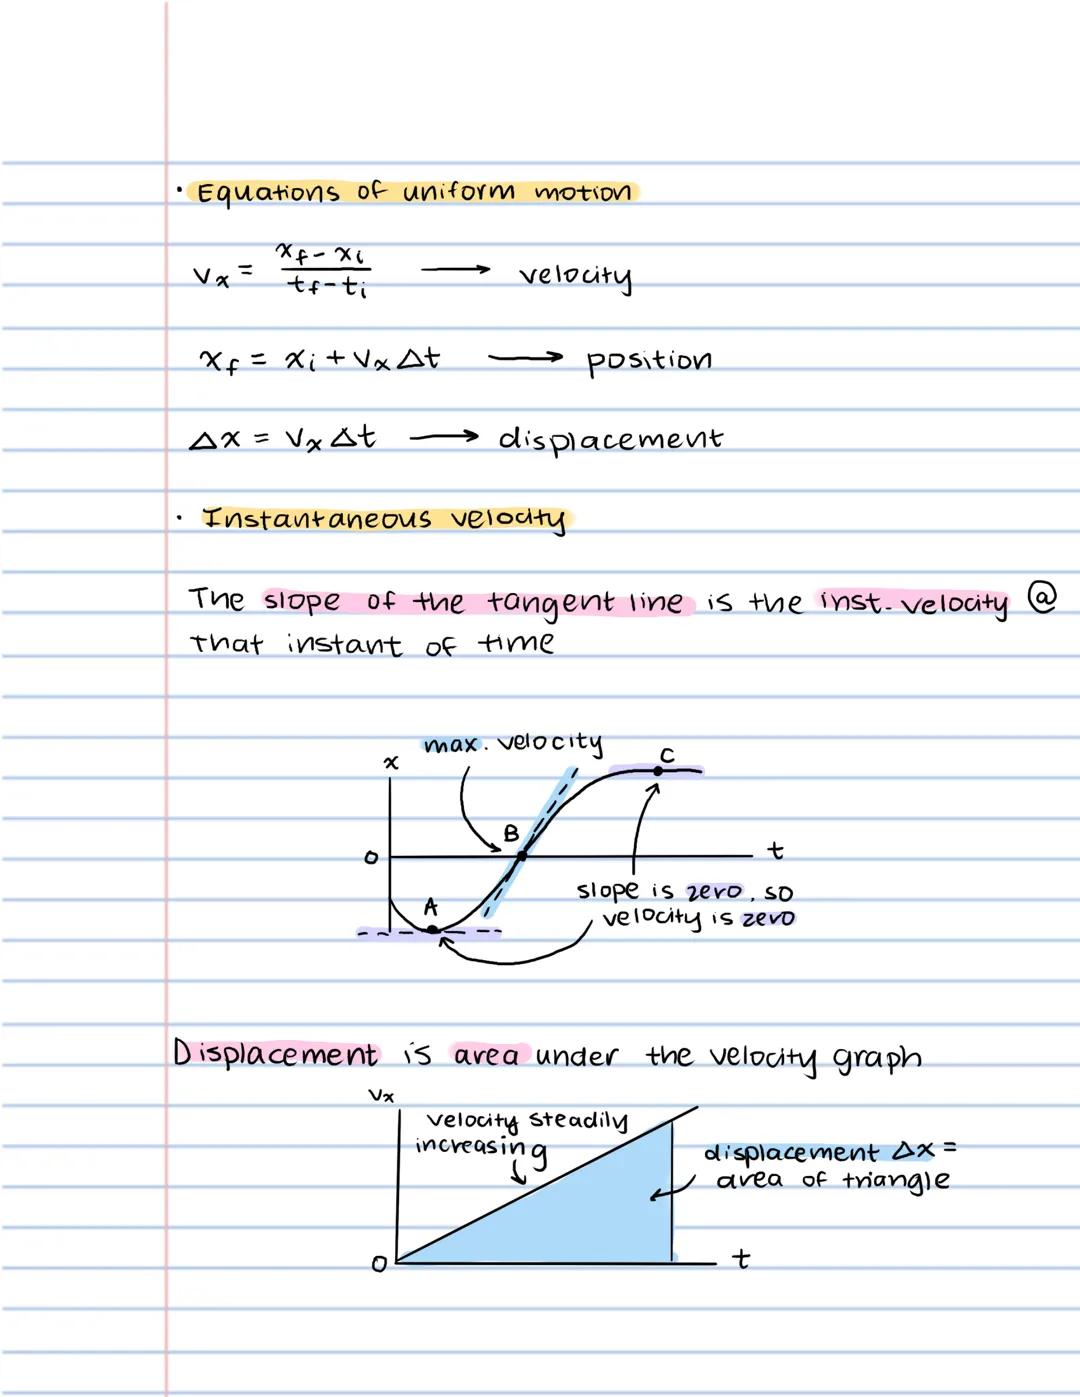 · Equations of uniform motion
vₓ = (x_f - x_i)/(t_f - t_i) ⟶ velocity
x_f = x_i + vₓ Δt ⟶ position
Δx = vₓ Δt ⟶ displacement
· Instantaneous velocity
The slope of the tangent line is the inst. velocity @
that instant of time
max. velocity
x
C
B
0
t
A
slope is zero, so
velocity is zero
Displacement is area under the velocity graph
vₓ
velocity steadily
increasing
displacement Δx =
area of triangle
0
t